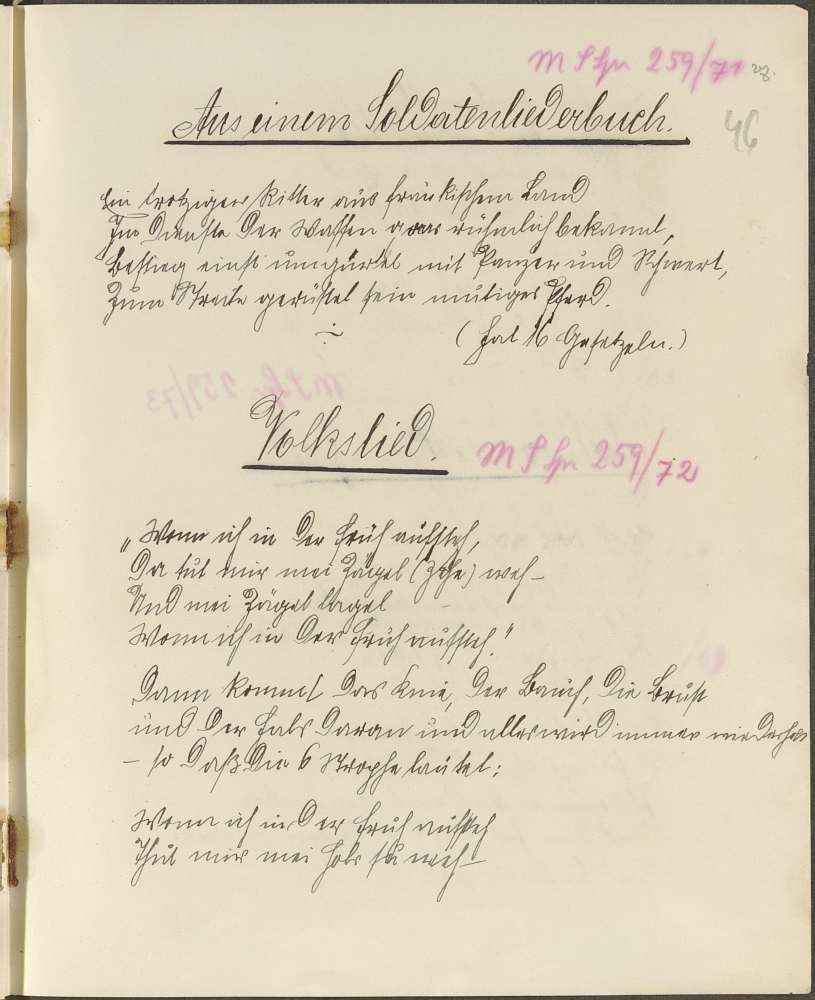 M S Hn 259/71
46
Aus einem Soldatenliederbuch.
Ein trotziger Ritter aus fränkischem Land
Im Dienste der Waffen gar rühmlich bekannt,
Bestieg einst umgürtet mit Panzer und Schwert,
Zum Streite gerüstet sein mutiges Pferd.
(Hat 16 Gesetzeln.)
Volkslied.
M S Hn 259/72
„Wenn ich in der Früh aufsteh,
Da tut mir mei Zägel (Zehe) weh –
Und mei Zägel lagel
Wenn ich in der Früh aufsteh."
Dann kommt das Knie, der Bauch, die Brust
und der Hals daran und alles wird immer wiederholt
– so daß die 6 Strophe lautet:
Wenn ich in der Früh aufsteh
Thut mir mei Hals so weh –